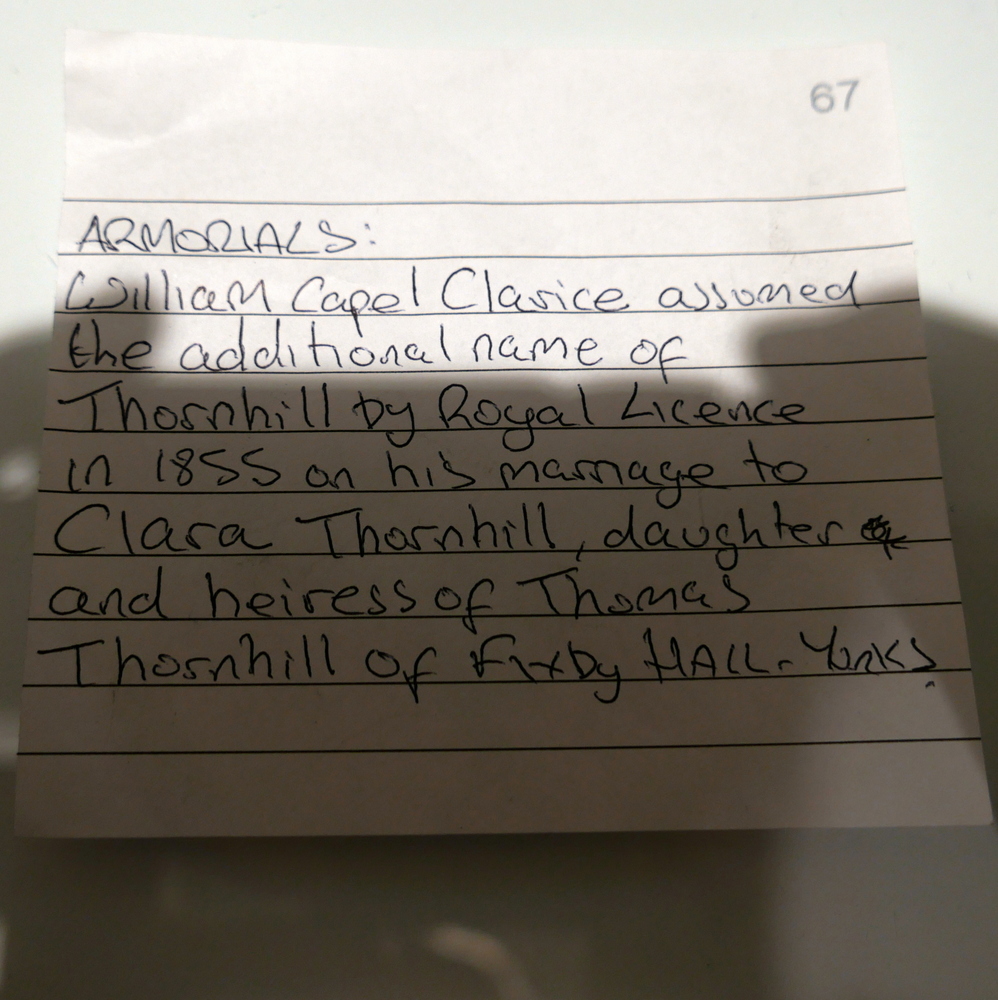 67
ARMORIALS:
William Capel Clarice assumed
the additional name of
Thornhill by Royal Licence
in 1855 on his marriage to
Clara Thornhill, daughter
and heiress of Thomas
Thornhill of Fixby HALL. Yorks.